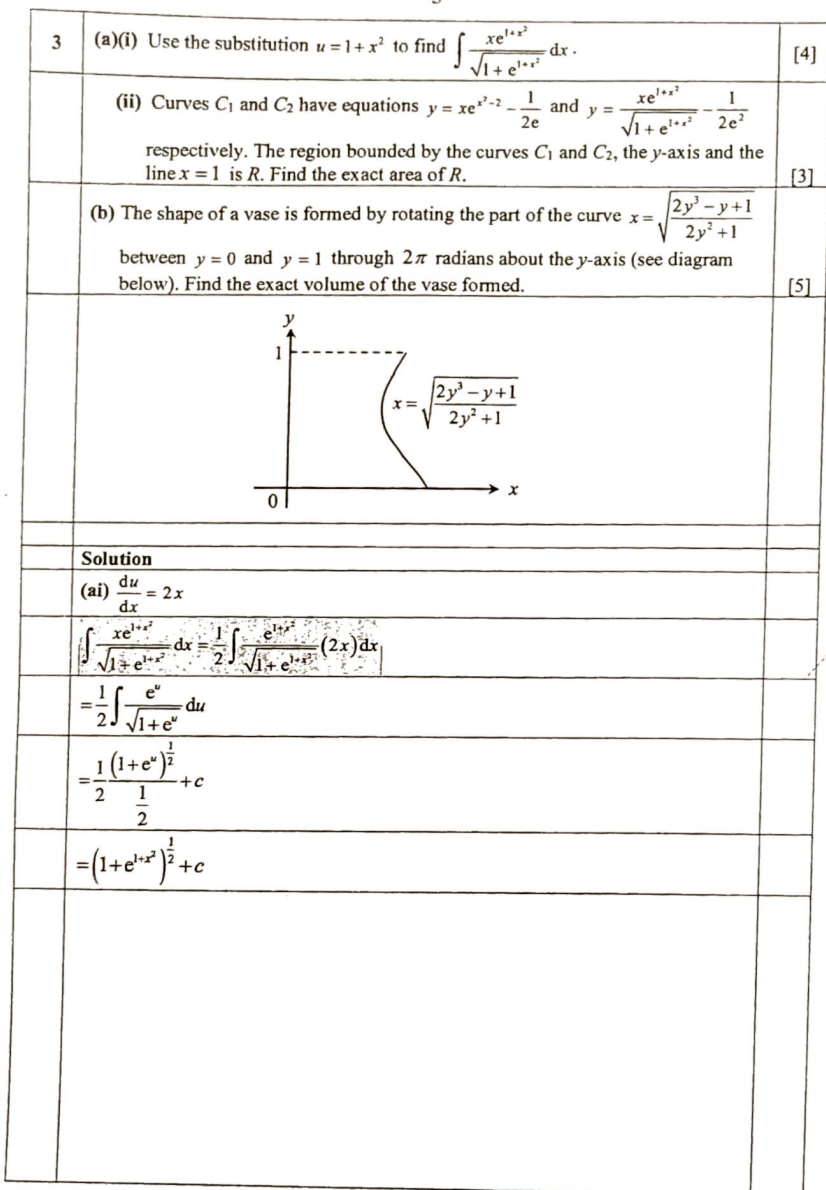 3 (a)(i) Use the substitution u = 1 + x² to find ∫ xe^(1+x²) / √(1 + e^(1+x²)) dx . [4]
(ii) Curves C₁ and C₂ have equations y = xe^(x²−2) − 1/(2e) and y = xe^(1+x²) / √(1 + e^(1+x²)) − 1/(2e²)
respectively. The region bounded by the curves C₁ and C₂, the y-axis and the
line x = 1 is R. Find the exact area of R. [3]
(b) The shape of a vase is formed by rotating the part of the curve x = √((2y³ − y + 1) / (2y² + 1))
between y = 0 and y = 1 through 2π radians about the y-axis (see diagram
below). Find the exact volume of the vase formed. [5]
y
1
x = √((2y³ − y + 1) / (2y² + 1))
0
x
Solution
(ai) du/dx = 2x
∫ xe^(1+x²) / √(1 + e^(1+x²)) dx = 1/2 ∫ e^(1+x²) / √(1 + e^(1+x²)) (2x)dx
= 1/2 ∫ e^u / √(1+e^u) du
= 1/2 (1+e^u)^(1/2) / (1/2) + c
= (1+e^(1+x²))^(1/2) + c